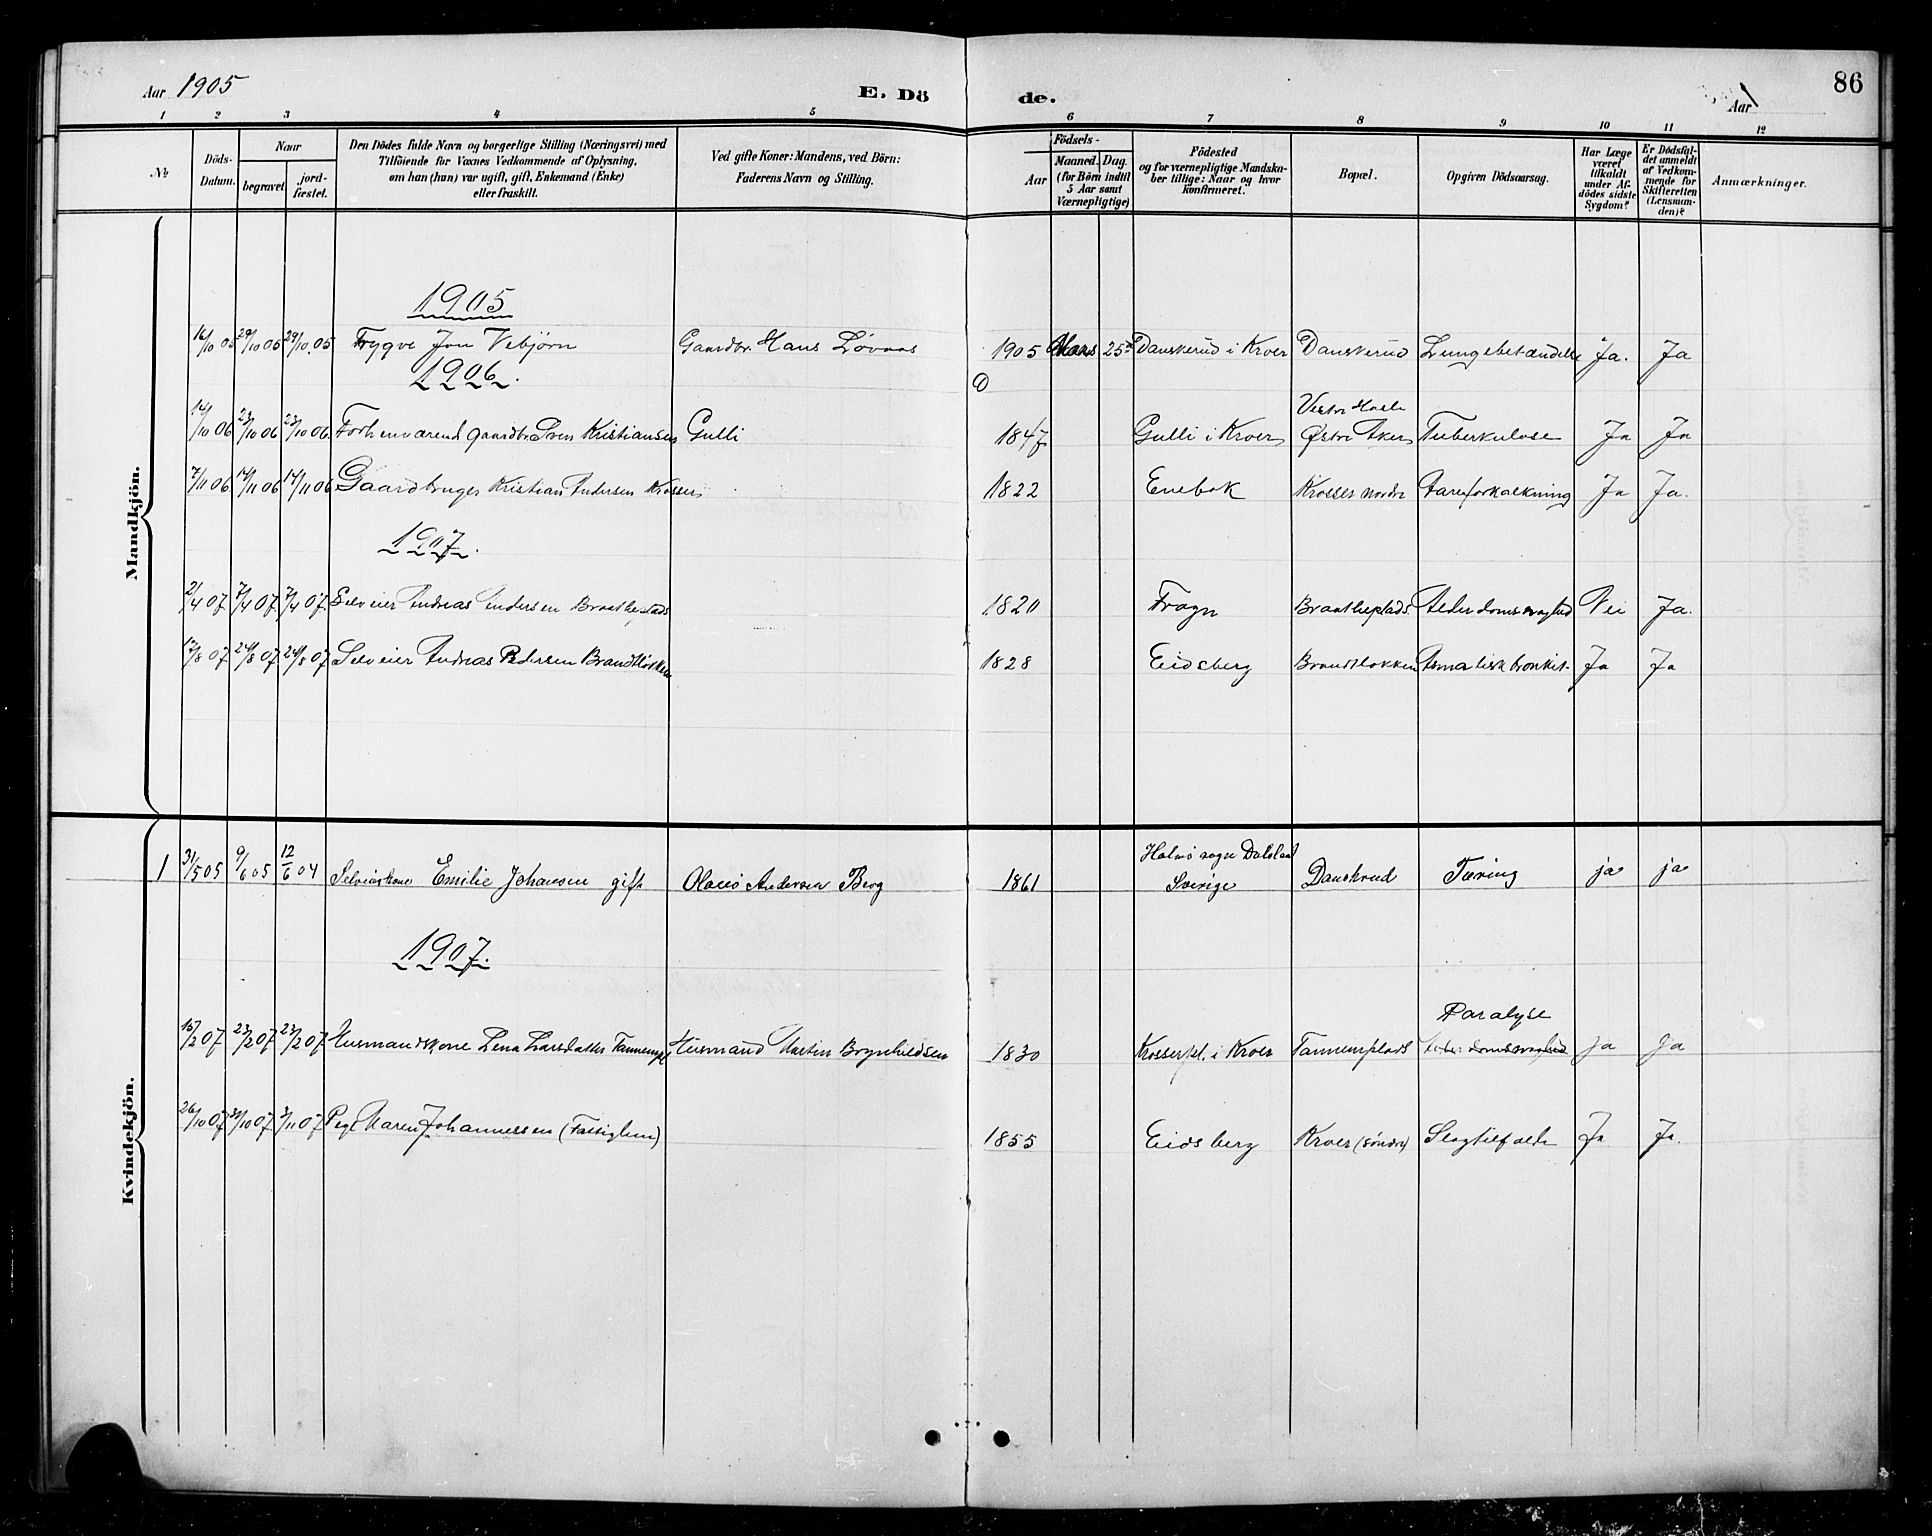 Aar 1905 E. Dö de. Aar 1 86
1 2 3 4 5 6 7 8 9 10 11 12
№
Döds-Datum.
Naar
begravet
jord-fæstet.
Den Dödes fulde Navn og borgerlige Stilling (Næringsvei) med
Tilföiende for Voxnes Vedkommende af Oplysning,
om han (hun) var ugift, gift, Enkemand (Enke)
eller fraskilt.
Ved gifte Koner: Mandens, ved Börn:
Faderens Navn og Stilling.
Födsels-
Aar
Maaned. Dag.
(for Börn indtil
5 Aar samt
Værnepligtige)
Födested
og for værnepligtige Mandska-
ber tillige: Naar og hvor
konfirmeret.
Bopæl.
Opgiven Dödsaarsag.
Har Læge
været
tilkaldt
under Af-
dödes sidste
Sygdom?
Er Dödsfal-
det anmeldt
af Vedkom-
mende for
Skifteretten
(Lensman-
den)?
Anmærkninger.
Mandkjön.
1905
16/10 05 29/10 05 29/10 05 Trygve Jon Vebjörn Gaardbr. Hans Lövaas 1905 25 Danskerud i Kroer Danskerud Lungebetændelse Ja. Ja
1906.
14/10 06 23/10 06 23/10 06. Forhenværend gaardbr. Sven Kristiansen Gulli 1847 Gulli i Kroer Vestre Østre Aker Tuberkulose Ja Ja
7/11 06 14/11 06 14/11 06 Gaardbruger Kristian Andersen Krosser 1822 Enebak Krosser nordre Aareforkalkning Ja Ja.
1907.
2/4 07 7/4 07 7/4 07 Selveier Andreas Andersen Braatheplads 1820 Frogn Braatheplads. Alderdomssvaghed Nei Ja.
17/8 07 24/8 07 24/8 07 Selveier Andreas Pedersen Brandtløkken 1828 Eidsberg Brandtløkken Asmatisk bronkit. Ja Ja
Kvindekjön.
1 31/5 05 9/6 05 12/6 04 Selveierkone Emilie Johansen gift Olaus Andersen Berg 1861 Holmö sogn Dalsland Sverige Danskrud Tæring ja ja
1907.
15/2 07 23/2 07 23/2 07 Husmandskone Lena Larsdatter Tannempl Husmand Martin Brynhildsen 1830 Krosserpl. i Kroer Tannemplads Paralyse Alderdomssvaghed Ja Ja
26/10 07 31/10 07 3/11 07 Pige Maren Johannessen (Fattiglem) 1855 Eidsberg Kroer (söndre) Slagtilfælde Ja Ja.